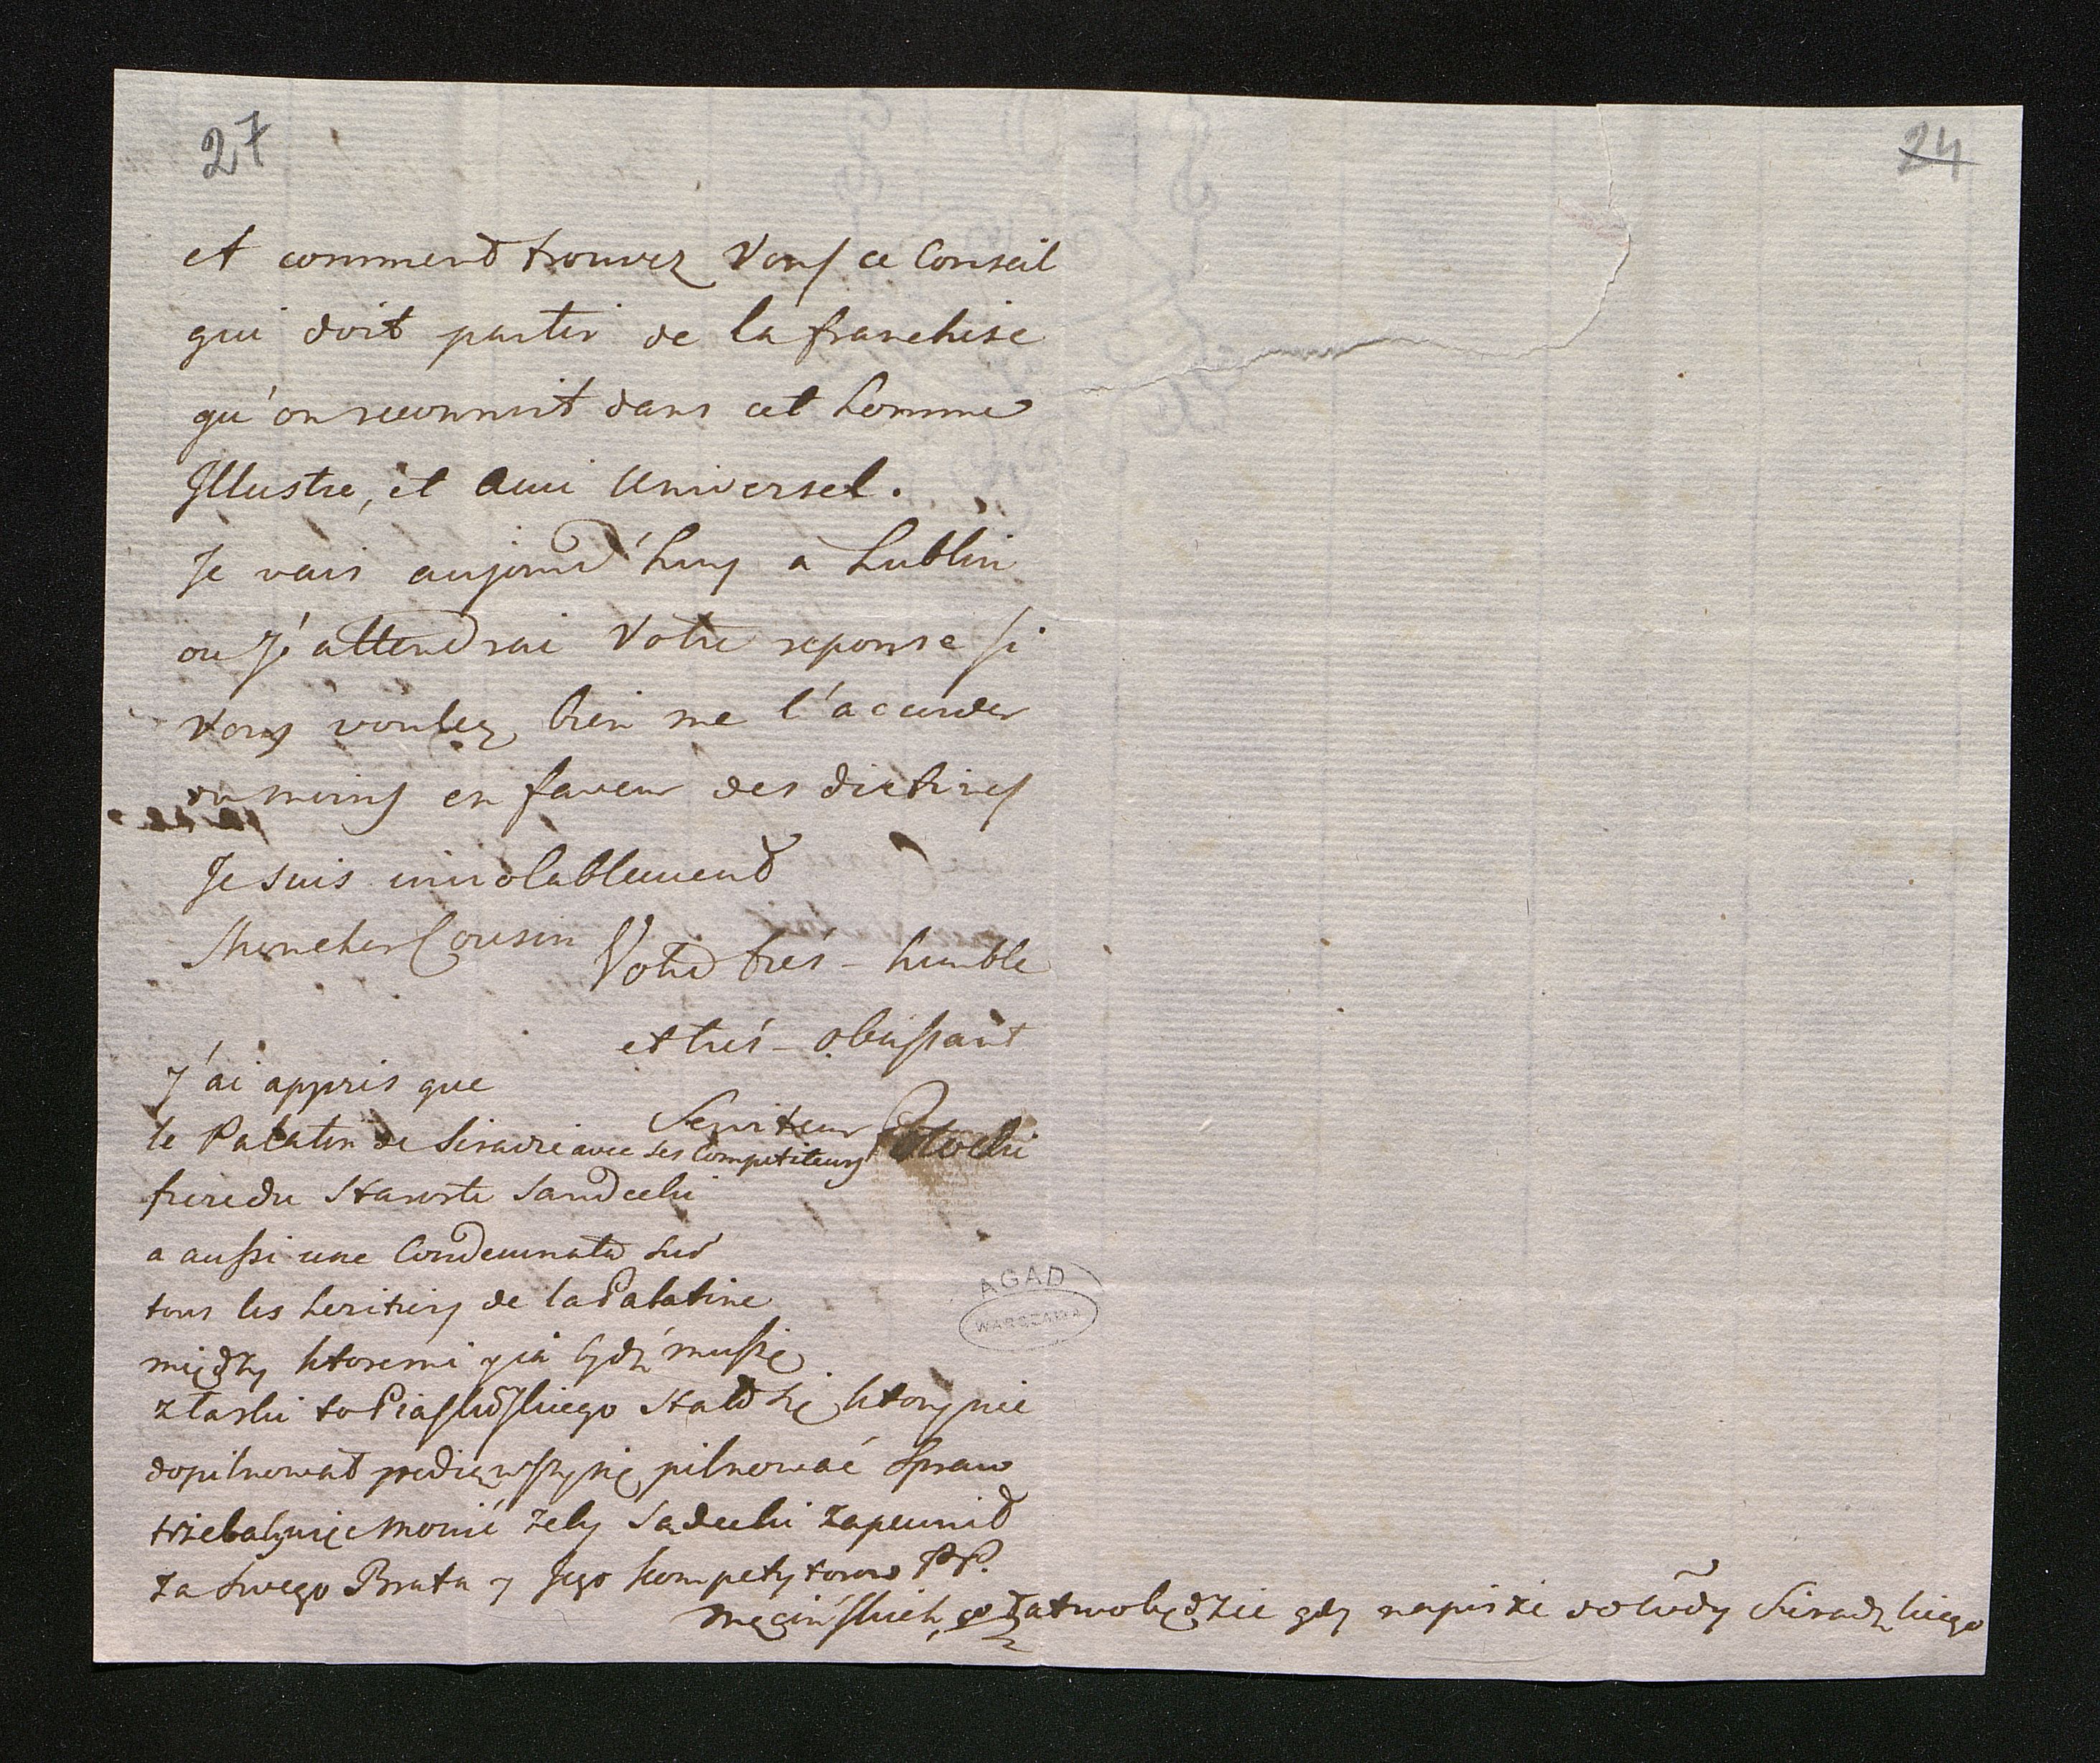 27
24
et comment trouvez Vous ce Conseil
qui doit partir de la franchise
qu'on reconnoit dans cet homme
Illustre, et Ami Universel.
Je vais aujourd'huy a Lublin
ou J'attendrai Votre reponse si
vous voulez bien me l'acorder
du moins en faveur des
Je suis inviolablement
Mon cher Cousin Votre trés-humble
et trés-obeissant
Serviteur Potocki
J'ai appris que
le Palatin de Siradie avec ses Competiteurs
frere du Staroste Sandecki
a aussi une Condemnate sur
tous les heritiers de la Palatine
między ktoremi y ia bydź muszę
z łaski to Piaskowskiego stało się ktory nie
dopilnował podiąwszy się pilnować spraw
trzeba by się mowić zeby Sądecki zapewnił
za swego Brata y Jego kompetytorow PP.
Męcińskich, co łatwo będzie gdy napisze do Wdy Siradzkiego
AGAD
WARSZAWA